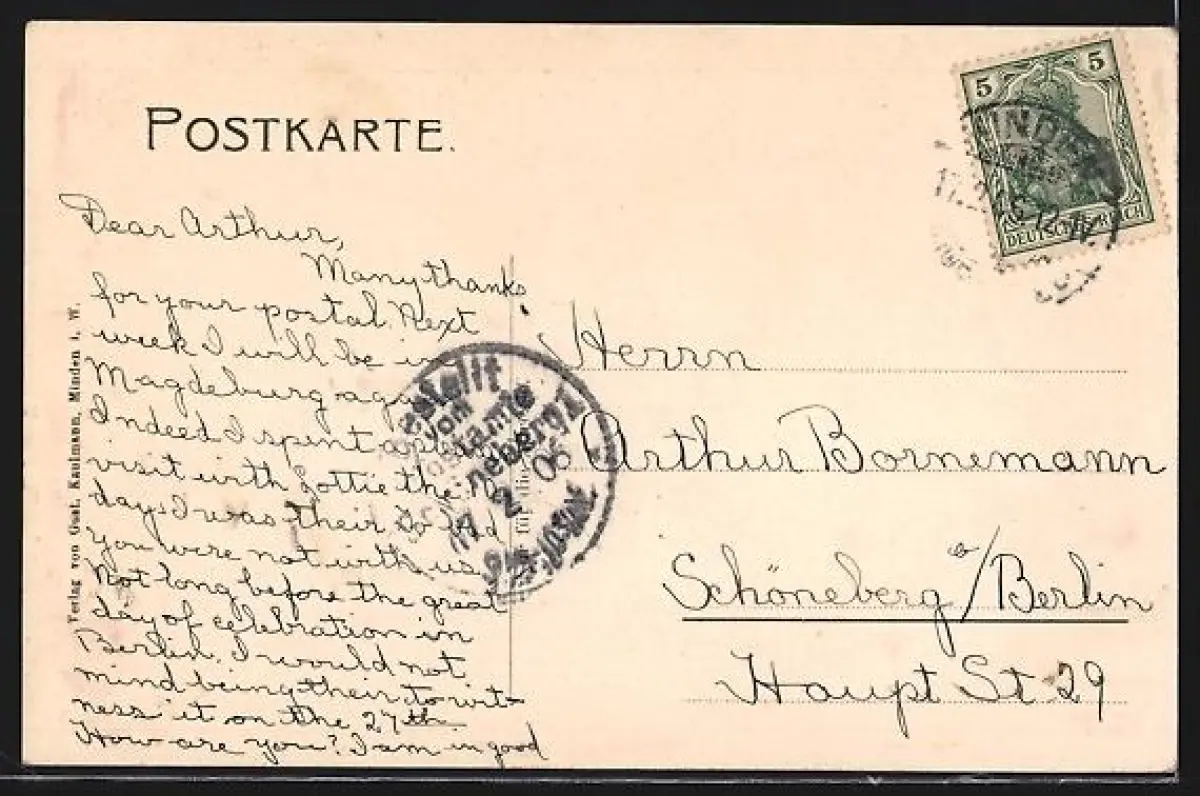 POSTKARTE.
5 5
DEUTSCHES REICH
Dear Arthur,
Many thanks
for your postal. Next
week I will be in
Magdeburg again
Indeed I spent a
visit with Lottie the
days I was their
you were not with us
Not long before the great
day of celebration in
Berlin. I would not
mind being their to wit-
ness it on the 27th
How are you? I am in good
Herrn
Arthur Bornemann
Schöneberg a/Berlin
Haupt St. 29
Bestellt
vom
Postamte
Schöneberg 1
17 2 06
für die
Verlag von Gust. Kaulmann, Minden i. W.